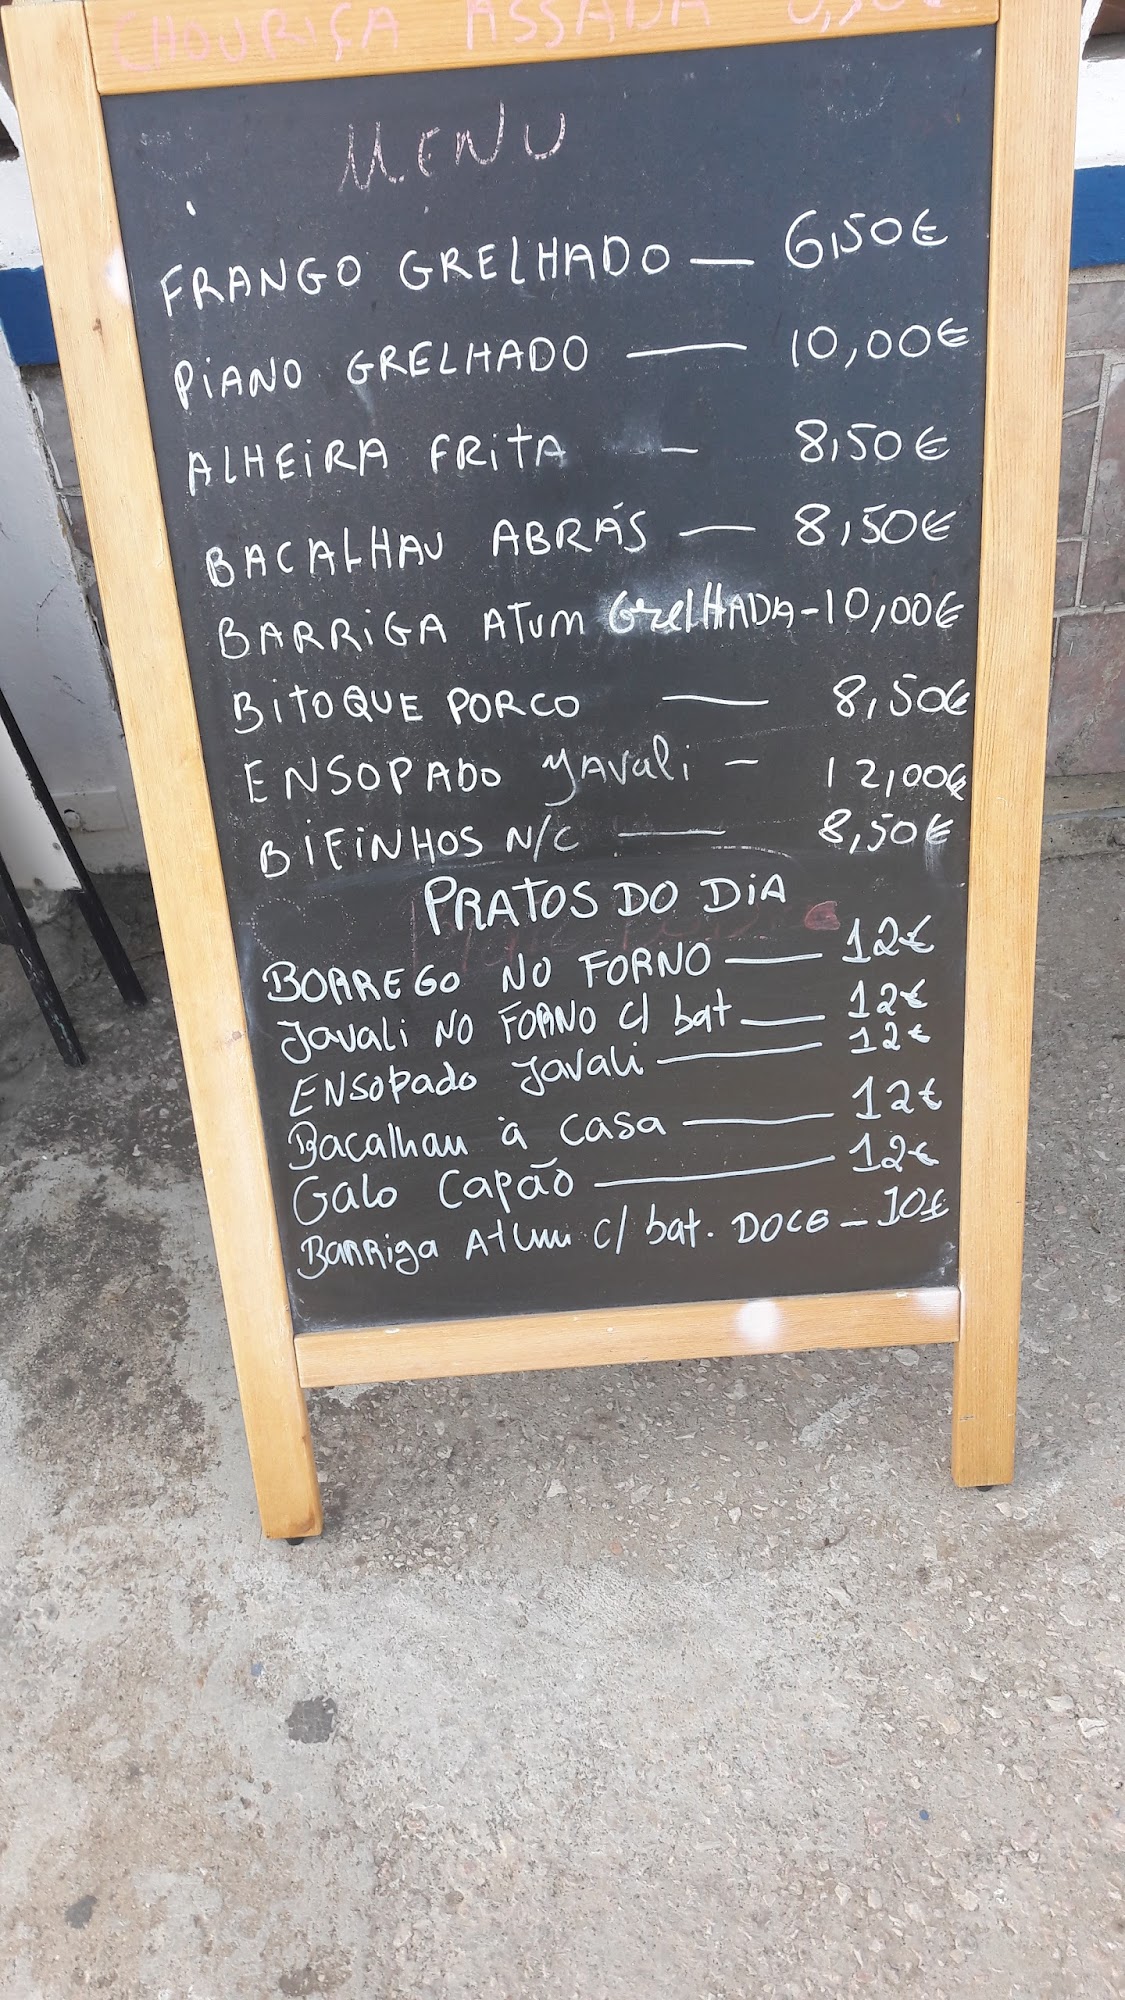 CHOURIÇA ASSADA
MENU
FRANGO GRELHADO — 6,50€
PIANO GRELHADO — 10,00€
ALHEIRA FRITA - 8,50€
BACALHAU ABRÁS — 8,50€
BARRIGA ATUM GrelHADA - 10,00€
BITOQUE PORCO — 8,50€
ENSOPADO JAVAli - 12,00€
BIFINHOS N/C — 8,50€
PRATOS DO DIA
BORREGO NO FORNO — 12€
Javali NO FORNO c/ bat — 12€
ENSOPado Javali — 12€
Bacalhau à casa — 12€
Galo Capão — 12€
BARRiga Atum c/ bat. DOCE - 10€